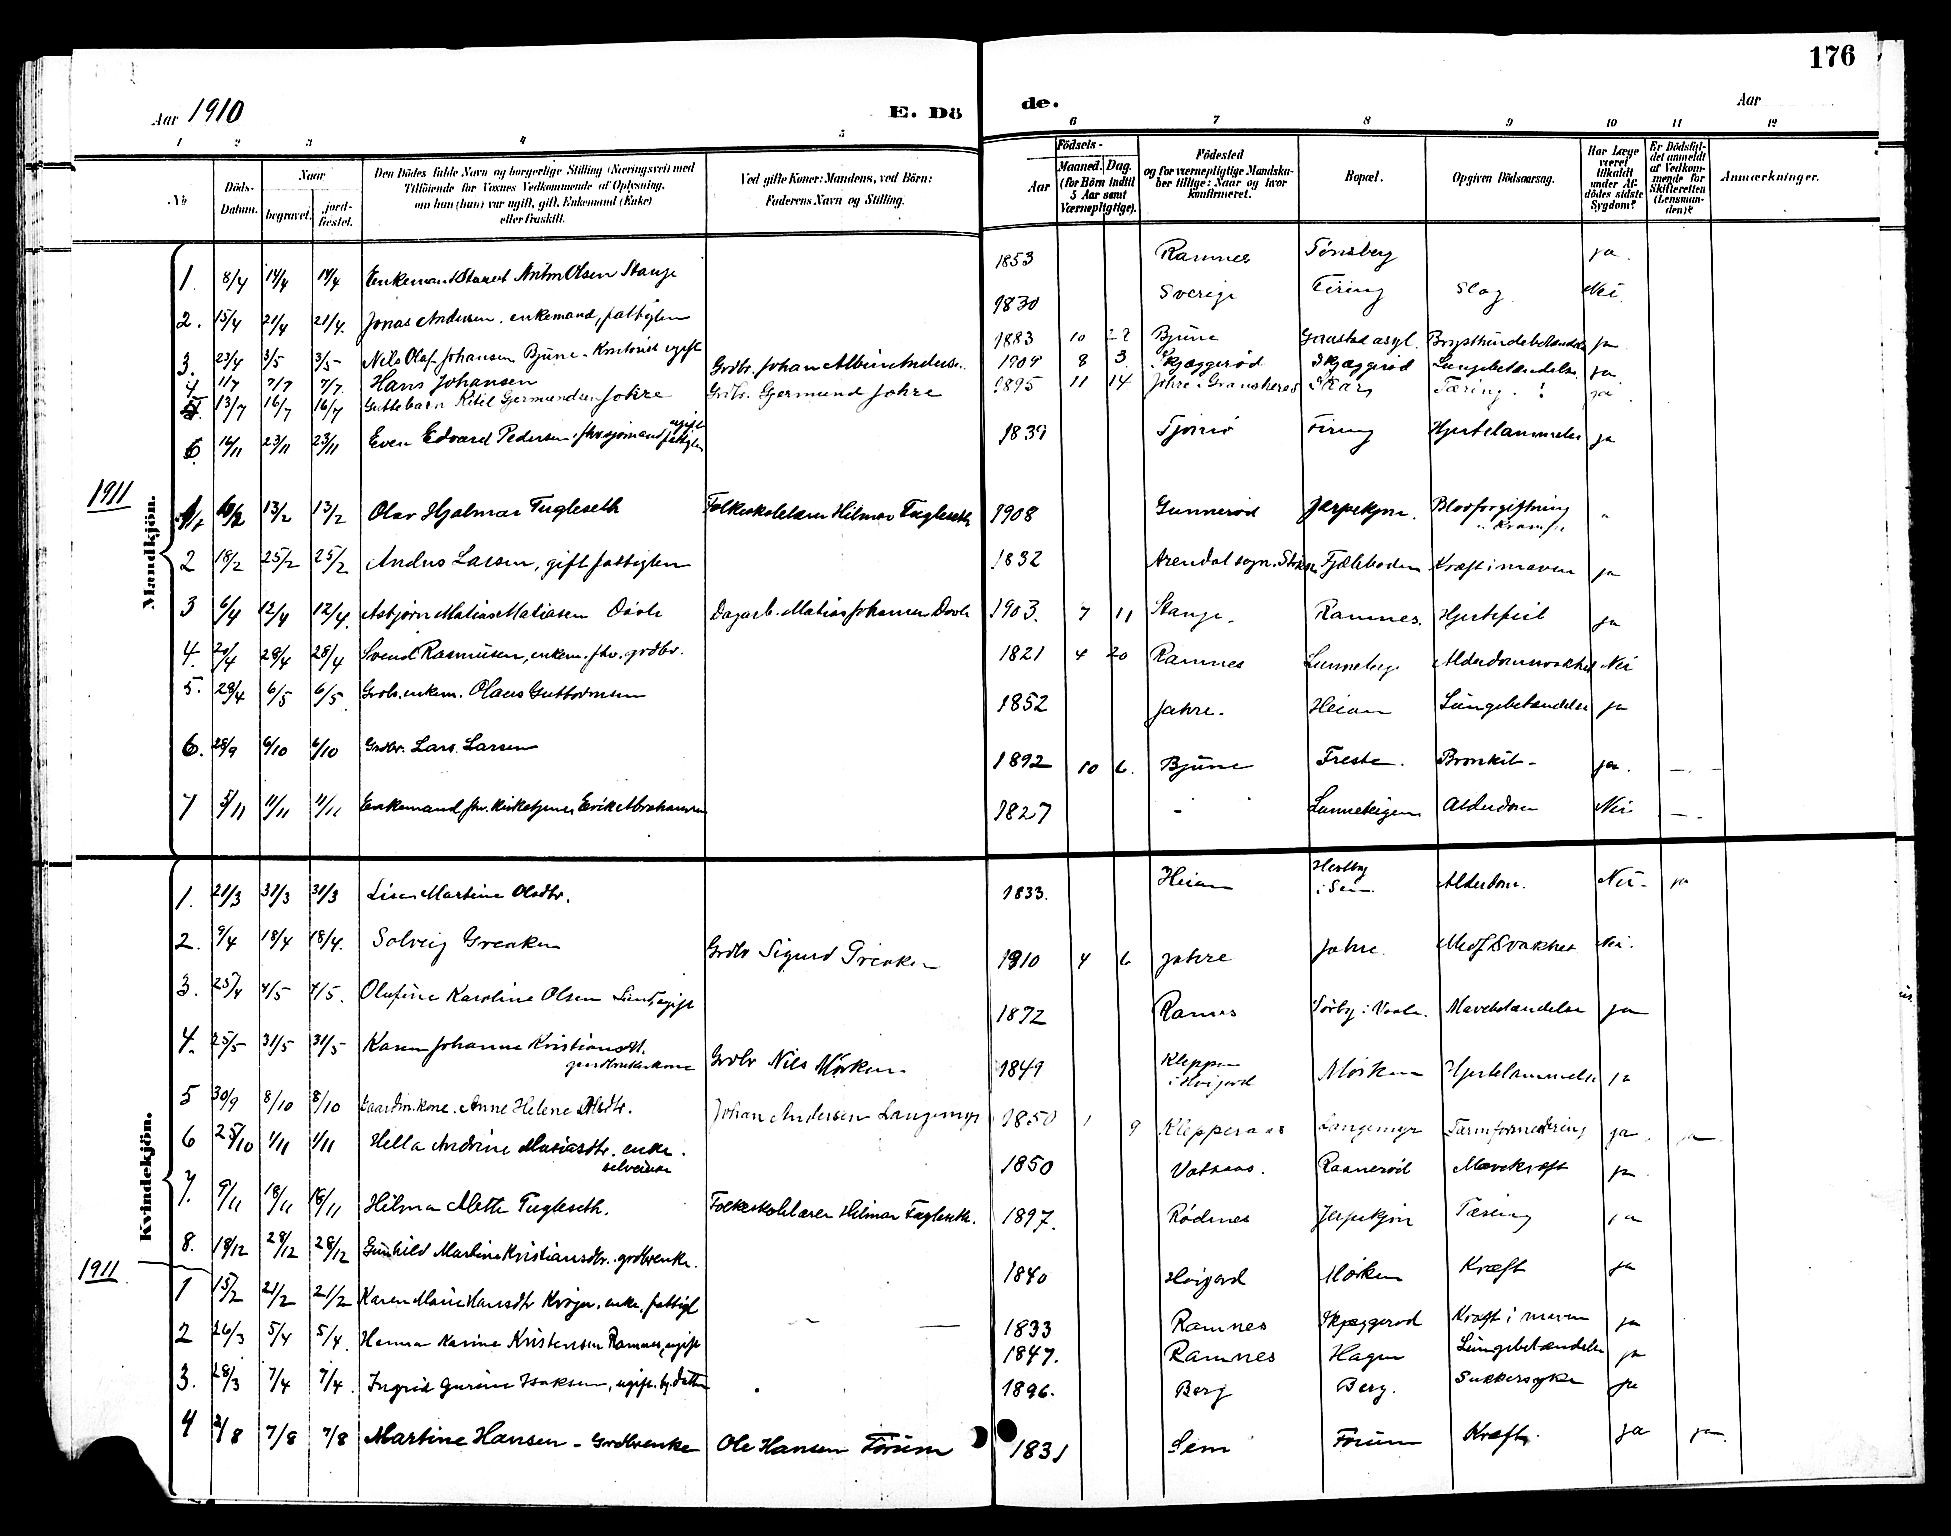 176
Aar 1910
E. Dö
de.
Aar
1 2 3 4 5 6 7 8 9 10 11 12
No
Döds-Datum.
Naar
begravet.
jord-fæstet.
Den Dödes fulde Navn og borgerlige Stilling (Næringsvei) med
Tilföiende for Voxnes Vedkommende af Oplysning,
om han (hun) var ugift, gift, Enkemand (Enke)
eller fraskilt.
Ved gifte Koner: Mandens, ved Börn:
Faderens Navn og Stilling.
Födsels-
Aar
Maaned. Dag.
(for Börn indtil
5 Aar samt
Værnepligtige).
Födested
og for værnepligtige Mandska-
ber tillige: Naar og hvor
konfirmeret.
Bopæl.
Opgiven Dödsaarsag.
Har Læge
været
tilkaldt
under Af-
dödes sidste
Sygdom?
Er Dödsfal-
det anmeldt
af Vedkom-
mende for
Skifteretten
(Lensman-
den)?
Anmærkninger.
Mandkjön.
1. 8/4 14/4 14/4 Enkemand Anton Olsen Stange 1853 Ramnes Tönsberg ja.
2. 15/4 21/4 21/4. Jonas Andersen. enkemand, fattiglem 1830 Sverige Firing Slag Nei.
3. 23/4 3/5 3/5 Nils Olaf Johansen Bjune - Kontorist ugift 1883 10 22 Bjune asyl. ja
4 11/7 7/7. Hans Johansen Grdbr. Johan Albin Anders. 1909 8 3 Skjæggeröd Skjæggeröd Lungebetændelse. ja.
5. 13/7 16/7 16/7 Guttebarn Ketil Germundsen Jahre Grdbr. Germund Jahre 1895 11 14 Jahre i Gransherad Tæring. ja.
6. 16/11 23/11 23/11 Even Edvard Pedersen, fhv sjømand ugift fattiglem Tjömö Firing Hjertelammelse ja
1911
13/2 13/2 Olav Hjalmar Fugleseth Folkeskolelærer Hilmar Fugleseth 1908 Gunneröd Jerpekjøn. Blodforgiftning
2 18/2 25/2 25/2 Anders Larsen, gift fattiglem 1832 Arendal sogn. Kræft i maven ja
3 6/4 12/4 12/4. Asbjørn Matias Matiasen Dagarb. Matias Johansen 1903. 7 11 Stange. Ramnes. Hjertefeil ja
4. 20/4 28/4 28/4 Svend Rasmussen, enkem. fhv. grdbr. 1821 4 20 Ramnes Lunneberg Alderdomssvakhet Nei
5. 29/4 6/5 6/5 Grdb. enkem. Olaus Guttormsen 1852 Jahre. Heian Lungebetændelse ja
6. 28/9 6/10 6/10 Grdbr. Lars Larsen 1892 10 6. Bjune Freste. Bronkit - ja.
7 5/11 11/11 11/11 Enkemand fhv. kirketjener Erik Abrahamsen 1827 - Alderdom Nei
Kvindekjön.
1. 21/3 31/3 31/3 Lise Martine Olsdtr. 1833. Heian i Sem. Alderdom. Nei - ja
2. 9/4 18/4 18/4. Solveig Greaker Grdbr Sigurd Greaker 1910 4 6 Jahre Jahre. Medf. Svakhet Nei.
3. 25/4 4/5 4/5. Olufine Karoline Olsen ugift 1872 Ramnes Sörby i Vaale. Mavebetændelse ja
4. 25/5 31/5 31/5 Karen Johanne Kristiansdt. gaardbrukerkone Grdbr Nils Mörken. 1849 Kleppan i Høijord Mörken Hjertelammelse ja
5 30/9 8/10 8/10 Gaardm. kone. Anne Helene Olsdtr. Johan Andersen Langemyr 1850 1 9 Klepperaas Langemyr ja. ja
6 25/10 1/11 1/11 Hella Andrine Mathiasdtr. enke. selveier 1850 Vataas. Raaneröd Mavekræft ja
7. 9/11 18/11 18/11 Hilma Mette Fugleseth. Folkeskolelærer Hilmar Fugleseth. 1897. Rödnes Jerpekjön Tæring ja
8. 18/12 28/12 28/12 Gunhild Martine Kristiansdtr. grdbrenke. 1840 Høijord Mörken Kræft ja
1911
1 15/2 21/2 21/2 Karen Marie Hansdtr enke. fattigl 1833 Ramnes Skjæggeröd Kræft i maven ja
2 26/3 5/4 5/4. Hanna Karine Kristensen Ramnes, ugift 1847. Ramnes Hagen Lungebetændelse ja
3. 28/3 7/4 7/4. Ingrid Gurine Isaksen, ugift. 1896. Berg Berg. Sukkersyke ja
4 2/8 7/8 7/8 Martine Hansen - Grdbrenke Ole Hansen Förum 1831 Sem Förum Kræft. ja ja.